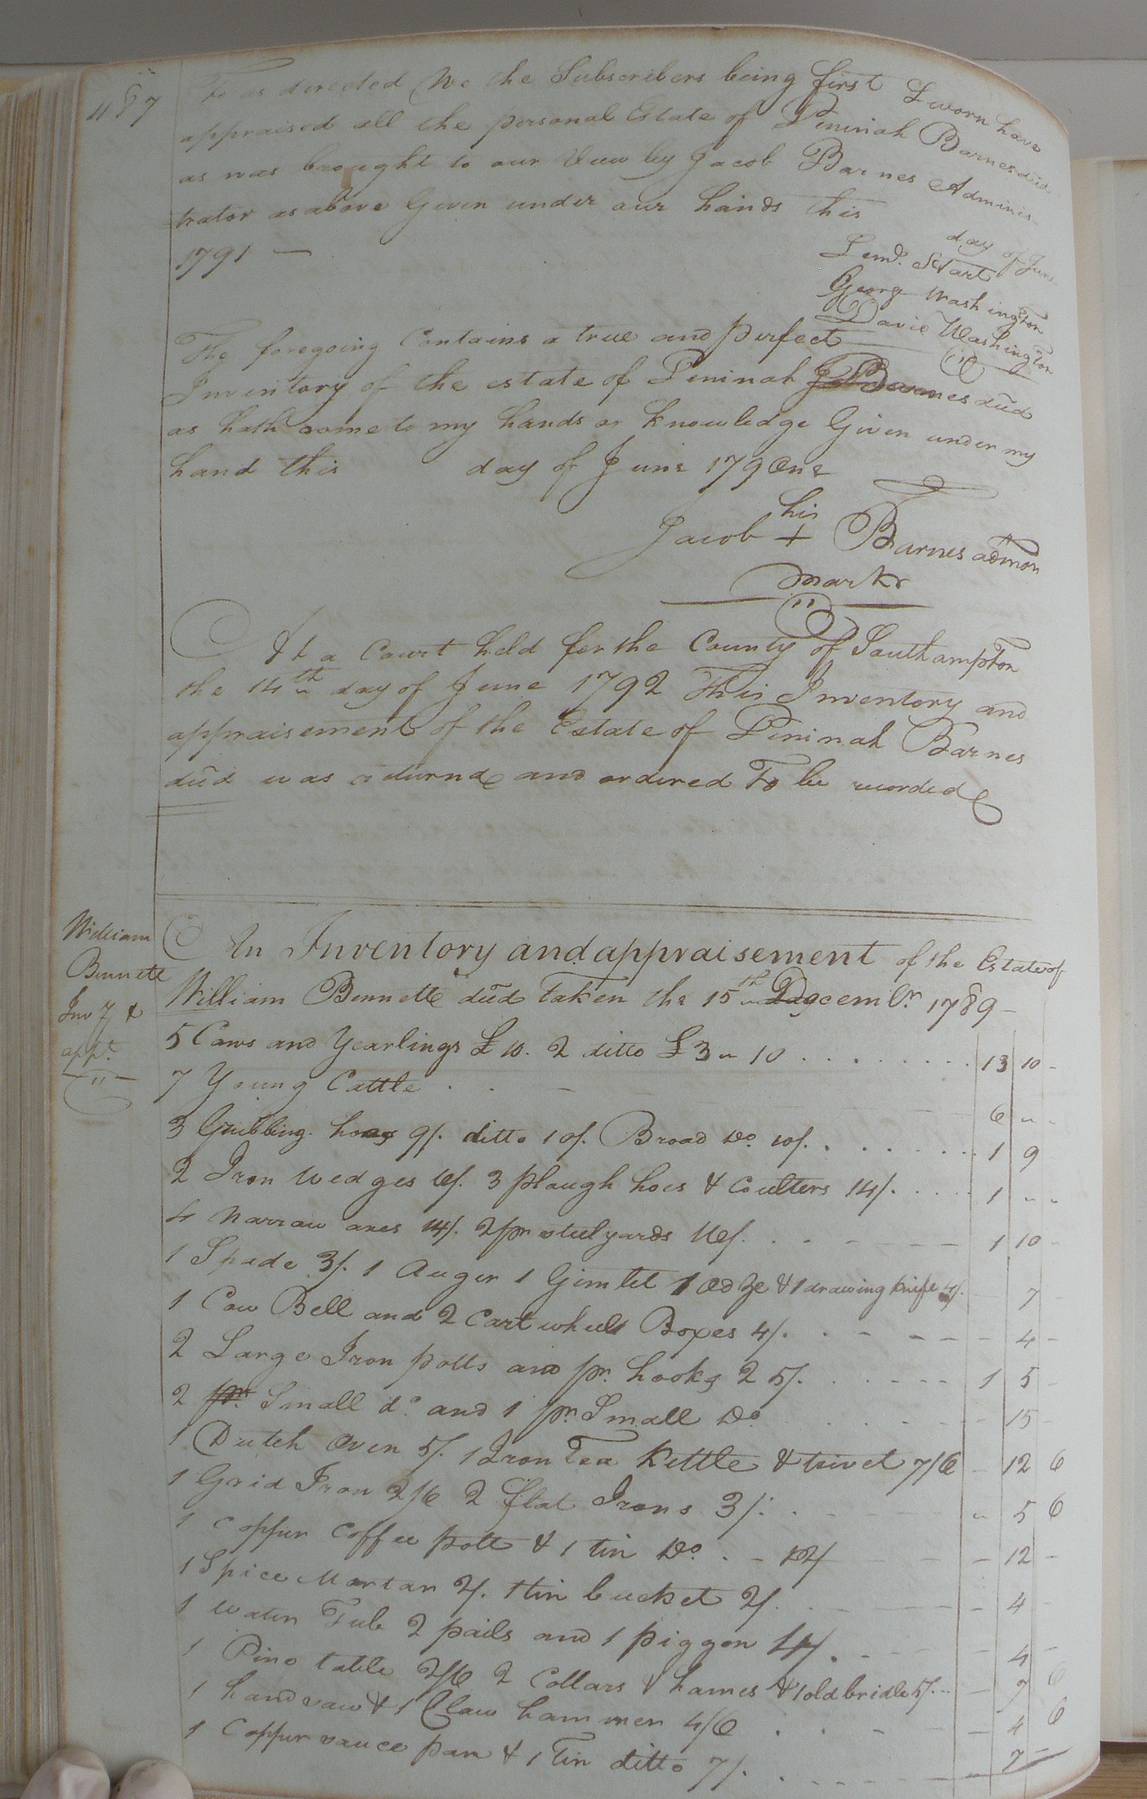 487
To as directed We the Subscribers being first Sworn have
appraised all the personal Estate of Peninah Barnes dec̃d
as was brought to our View by Jacob Barnes Adminis-
trator as above Given under our hands this day of June
1791 —
Lem.d Hart
Georg Washington
Davie Washington
The foregoing Contains a true and perfect
Inventory of the estate of Peninah Barnes dec̃d
as hath come to my hands or knowledge Given under my
hand this day of June 179One
his
Jacob + Barnes admon
marke
At a Court held for the County of Southampton
the 14th day of June 1792 This Inventory and
appraisement of the Estate of Peninah Barnes
dec̃d was returnd and ordered To be recorded
William
Bennett
Inv.y &
app.t
An Inventory and appraisement of the Estate of
William Bennett dec̃d taken the 15th Decemb.r 1789 –
5 Cows and Yearlings £10. 2 ditto £3 " 10 . . . . . . . 13 10 -
7 Young Cattle . . – 6 " -
3 Grubbing hoes 9/. ditto 10/. Broad Do. 10/. . . . . . . 1 9
2 Iron Wedges 6/. 3 plough hoes & Coulters 14/. . . . . 1 - -
4 Narrow axes 14/. 2 pr. stulyards 16/. . . – – 1 10 -
1 Spade 3/. 1 Auger 1 Gimlet 1 adze & 1 drawing knife 4/. 7 -
1 Cow Bell and 2 Cart wheel Boxes 4/. . – – – 4 -
2 Large Iron potts and pr. hooks 25/. . . . – – 1 5 -
2 Small do. and 1 pr. Small Do. . . – 15 -
1 Dutch Oven 5/. 1 Iron Tea Kettle & trivet 7/6 – 12 6
1 Grid Iron 2/6 2 flat Irons 3/. . . – " 5 6
1 Coppur Coffee pott & 1 tin Do. . – 12/ – 12 -
1 Spice Mortar 2/. 1 tin bucket 2/. – – 4 -
1 Watur Tub 2 pails and 1 piggon 4/. . – – 4 -
1 Pine table 2/6 2 Collars & hames & 1 old bridle 5/. – 7 6
1 hand saw & 1 Claw hammer 4/6 . . – 4 6
1 Coppur sauce pan & 1 Tin ditto 7/. . – – 7 –